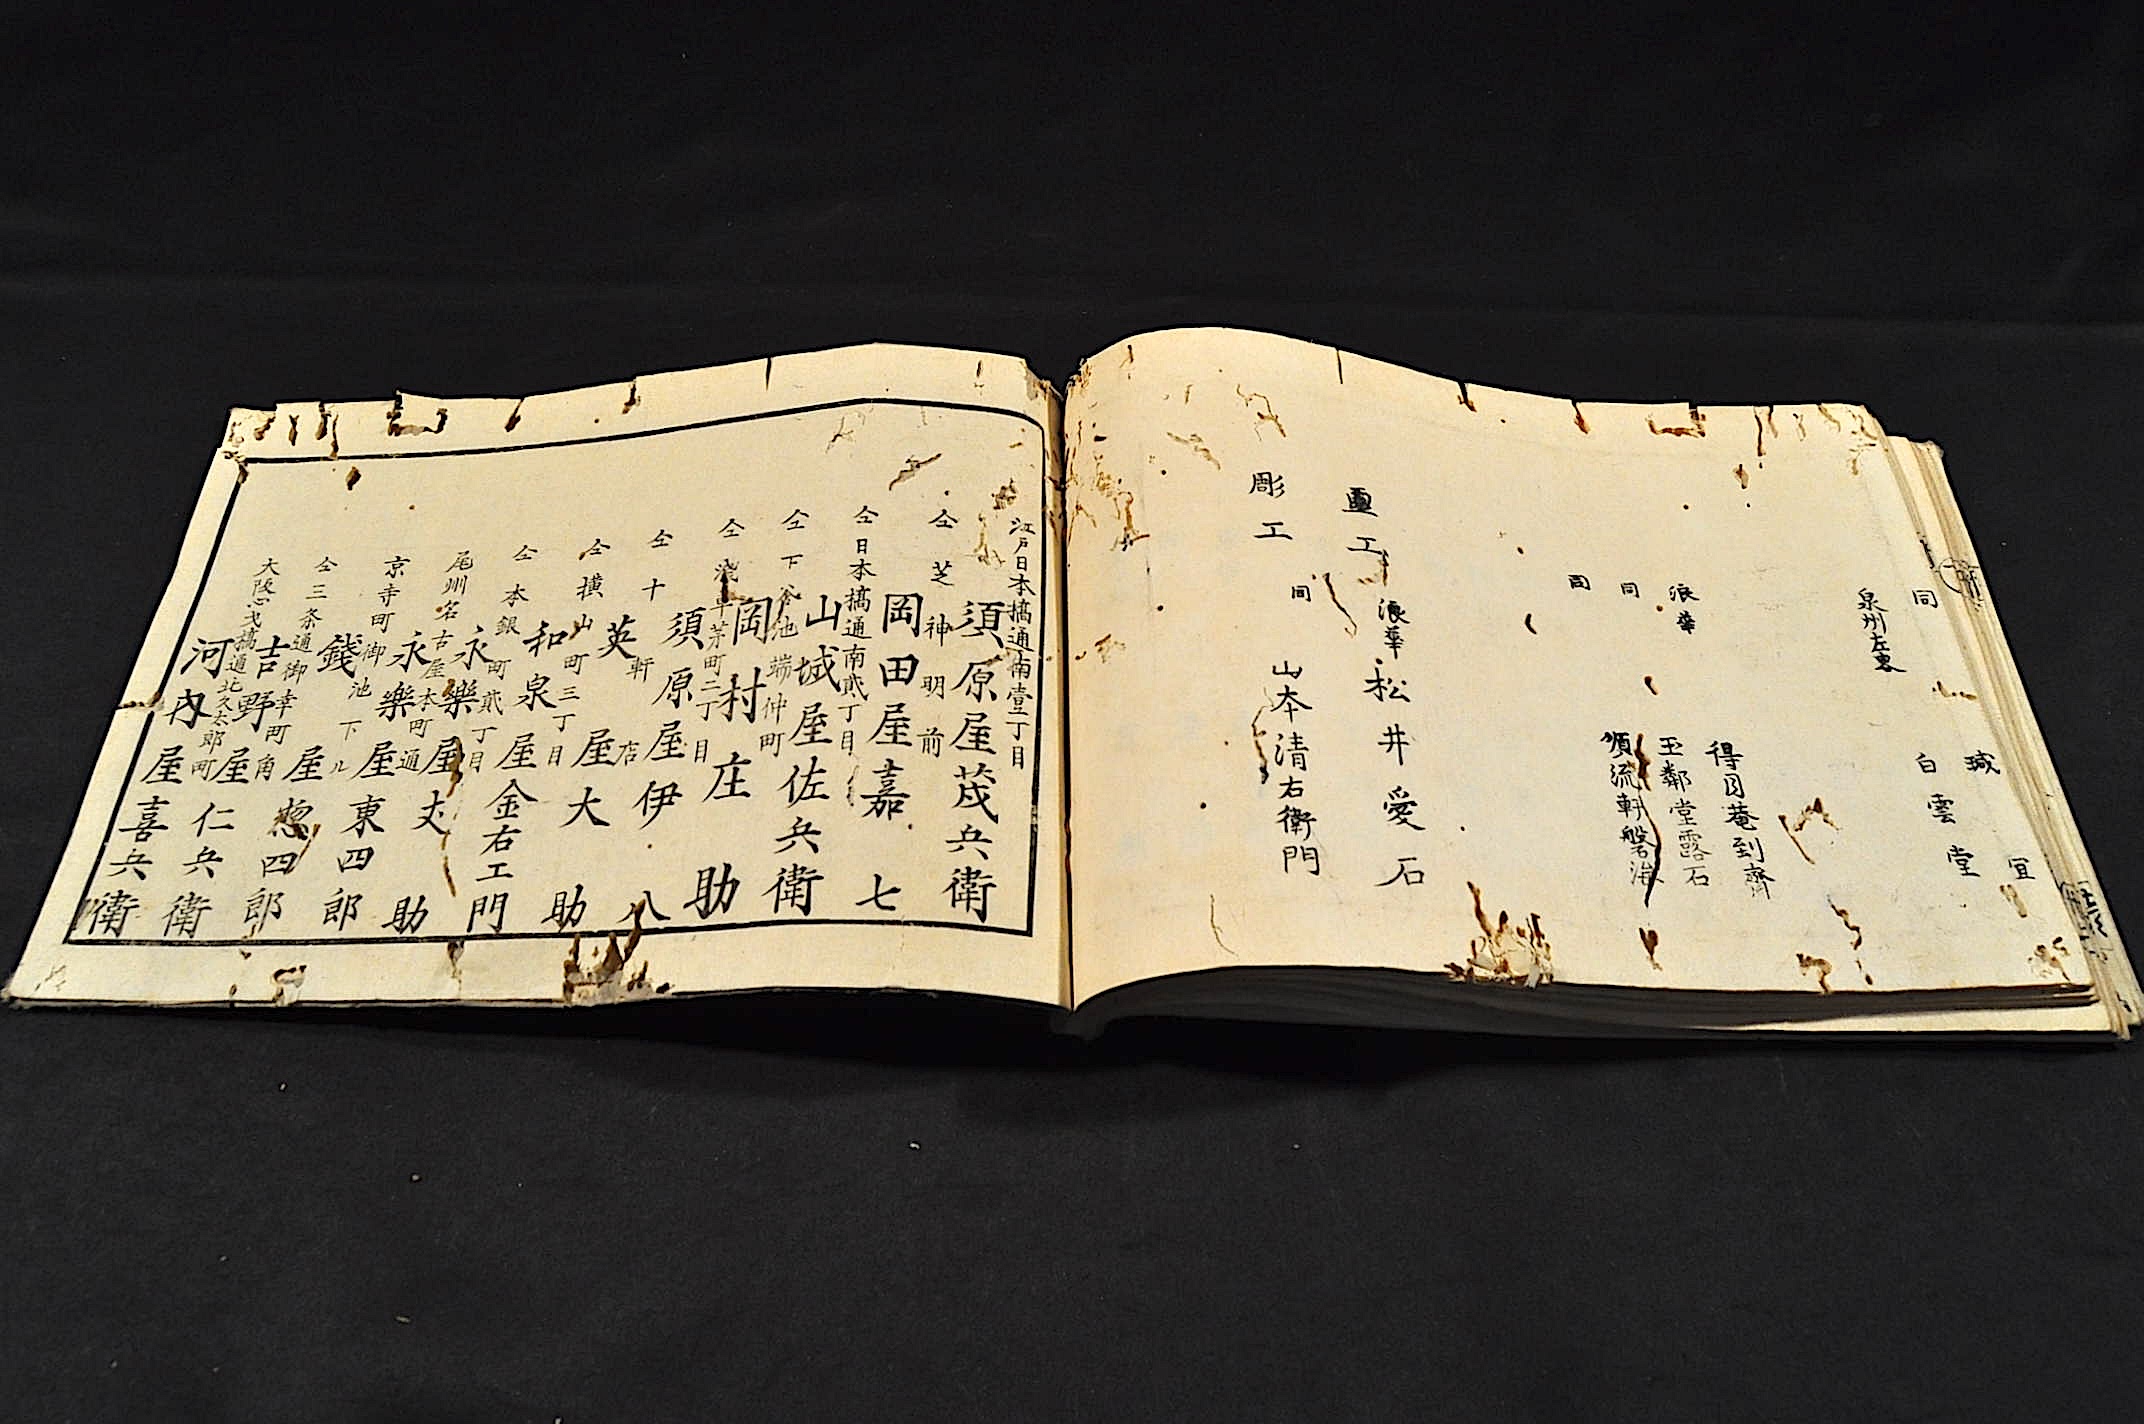 同
泉州左衷
白雲堂
浪華 得月菴到齋
同 玉鄰堂露石
同 頌流軒盤治
畫工 浪華 松井愛石
彫工 同 山本清右衛門
江戸日本橋通南壹丁目
須原屋茂兵衛
仝芝神明前
岡田屋嘉七
仝日本橋通南貮丁目
山城屋佐兵衛
仝下谷池端仲町
岡村庄助
仝淺草茅町二丁目
須原屋伊八
仝十軒店
英屋大助
仝横山町三丁目
和泉屋金右エ門
仝本銀町貮丁目
永樂屋丈助
尾州名古屋本町通
永樂屋東四郎
京寺町御池下ル
錢屋惣四郎
仝三条通御幸町角
吉野屋仁兵衛
大阪心斎橋通北久太郎町
河内屋喜兵衛